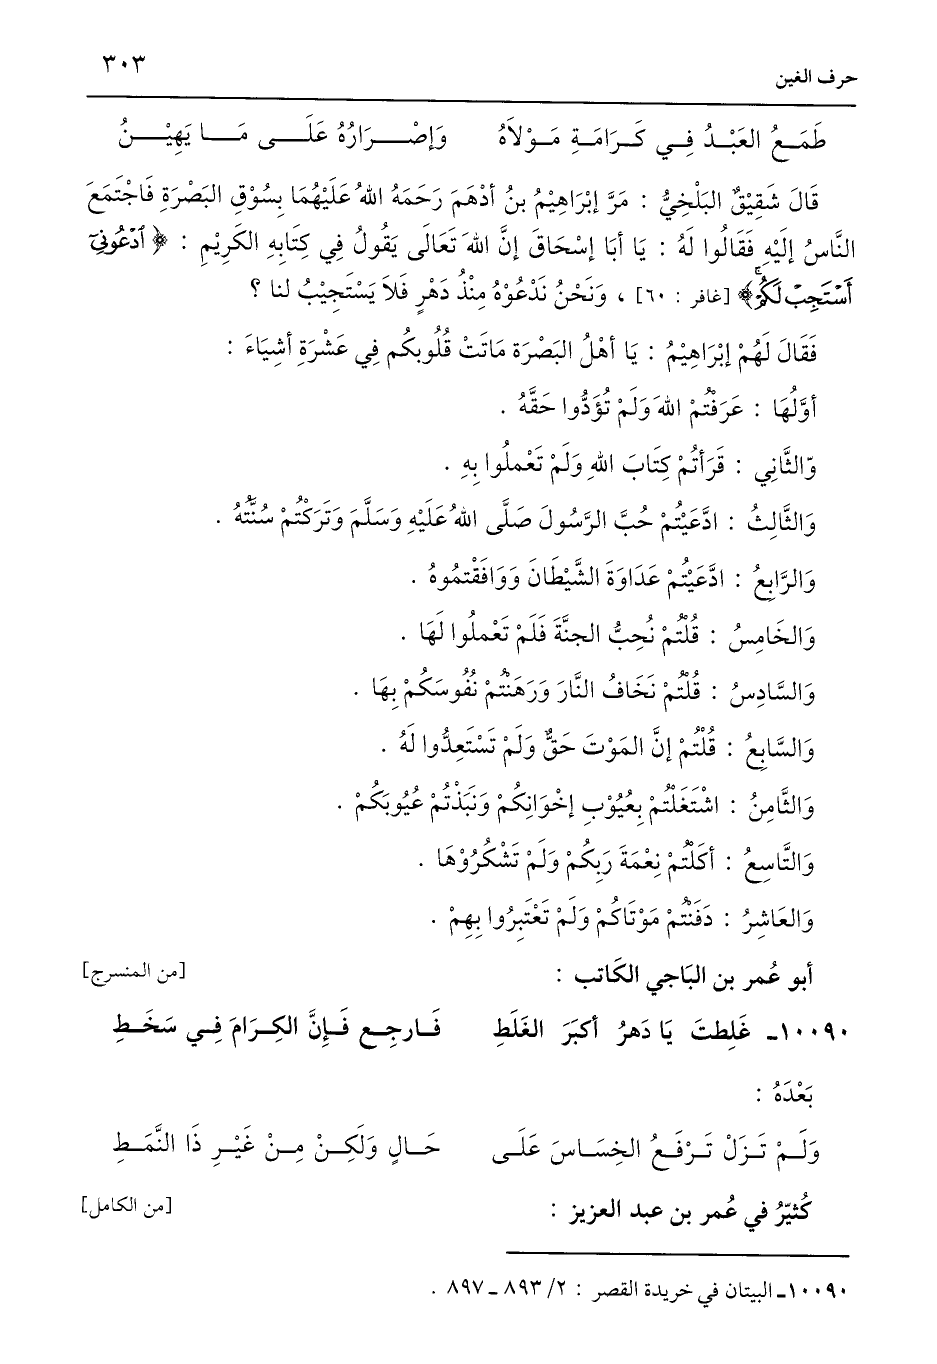 حرف الغين ٣٠٣
طَمَعُ العَبْدُ فِي كَرَامَةِ مَوْلاَهُ وَإصْرَارُهُ عَلَى مَا يَهِيْنُ
قَالَ شَقِيْقٌ البَلْخِيُّ : مَرَّ إبْرَاهِيْمُ بنُ أدْهَمَ رَحَمَهُ اللهُ عَلَيْهُمَا بِسُوْقِ البَصْرَةِ فَاجْتَمَعَ
النَّاسُ إلَيْهِ فَقَالُوا لَهُ : يَا أبَا إسْحَاقَ إنَّ اللهَ تَعَالَى يَقُولُ فِي كِتَابِهِ الكَرِيْمِ : ﴿ ٱدْعُونِيٓ
أَسْتَجِبْ لَكُمْ ﴾ [غافر : ٦٠] ، وَنَحْنُ نَدْعُوْهُ مِنْذُ دَهْرٍ فَلاَ يَسْتَجِيْبُ لنا ؟
فَقَالَ لَهُمْ إبْرَاهِيْمُ : يَا أهْلُ البَصْرَة مَاتَتْ قُلُوبكُم فِي عَشْرَةِ أشْيَاءَ :
أوَّلُهَا : عَرَفْتُمْ اللهَ وَلَمْ تُؤَدُّوا حَقَّهُ .
وّالثَّانِي : قَرَأتُمْ كِتَابَ اللهِ وَلَمْ تَعْملُوا بِهِ .
وَالثَّالِثُ : ادَّعَيْتُمْ حُبَّ الرَّسُولَ صَلَّى اللهُ عَلَيْهِ وَسَلَّمَ وَتَرَكْتُمْ سُنَّتَهُ .
وَالرَّابِعُ : ادَّعَيْتُمْ عَدَاوَةَ الشَّيْطَانَ وَوَافَقْتمُوهُ .
وَالخَامِسُ : قُلْتُمْ نُحِبُّ الجنَّةَ فَلَم تَعْملُوا لَهَا .
وَالسَّادِسُ : قُلْتُمْ نَخَافُ النَّارَ وَرَهَنْتُمْ نُفُوسَكُمْ بِهَا .
وَالسَّابِعُ : قُلْتُمْ إنَّ المَوْتَ حَقٌّ وَلَمْ تَسْتَعِدُّوا لَهُ .
وَالثَّامنُ : اشْتَغَلْتُمْ بِعُيُوْبِ إخْوَانِكُمْ وَنَبَذْتُمْ عُيُوبَكُمْ .
وَالتَّاسِعُ : أكَلْتُمْ نِعْمَةَ رَبِكُمْ وَلَمْ تَشْكُرُوْهَا .
وَالعَاشِرُ : دَفَنْتُمْ مَوْتَاكُمْ وَلَمْ تَعْتَبِرُوا بِهِمْ .
أبو عُمر بن البَاجي الكَاتب : [من المنسرح]
١٠٠٩٠ـ غَلِطتَ يَا دَهرُ أكبَرَ الغَلَطِ فَارجِع فَإنَّ الكِرَامَ فِي سَخَطِ
بَعْدَهُ :
وَلَمْ تَزَلْ تَرْفَعُ الخِسَاسَ عَلَى حَالٍ وَلَكِنْ مِنْ غَيْرِ ذَا النَّمَطِ
كُثيّرُ في عُمر بن عبد العزيز : [من الكامل]
١٠٠٩٠ـ البيتان في خريدة القصر : ٢/ ٨٩٣ ـ ٨٩٧ .